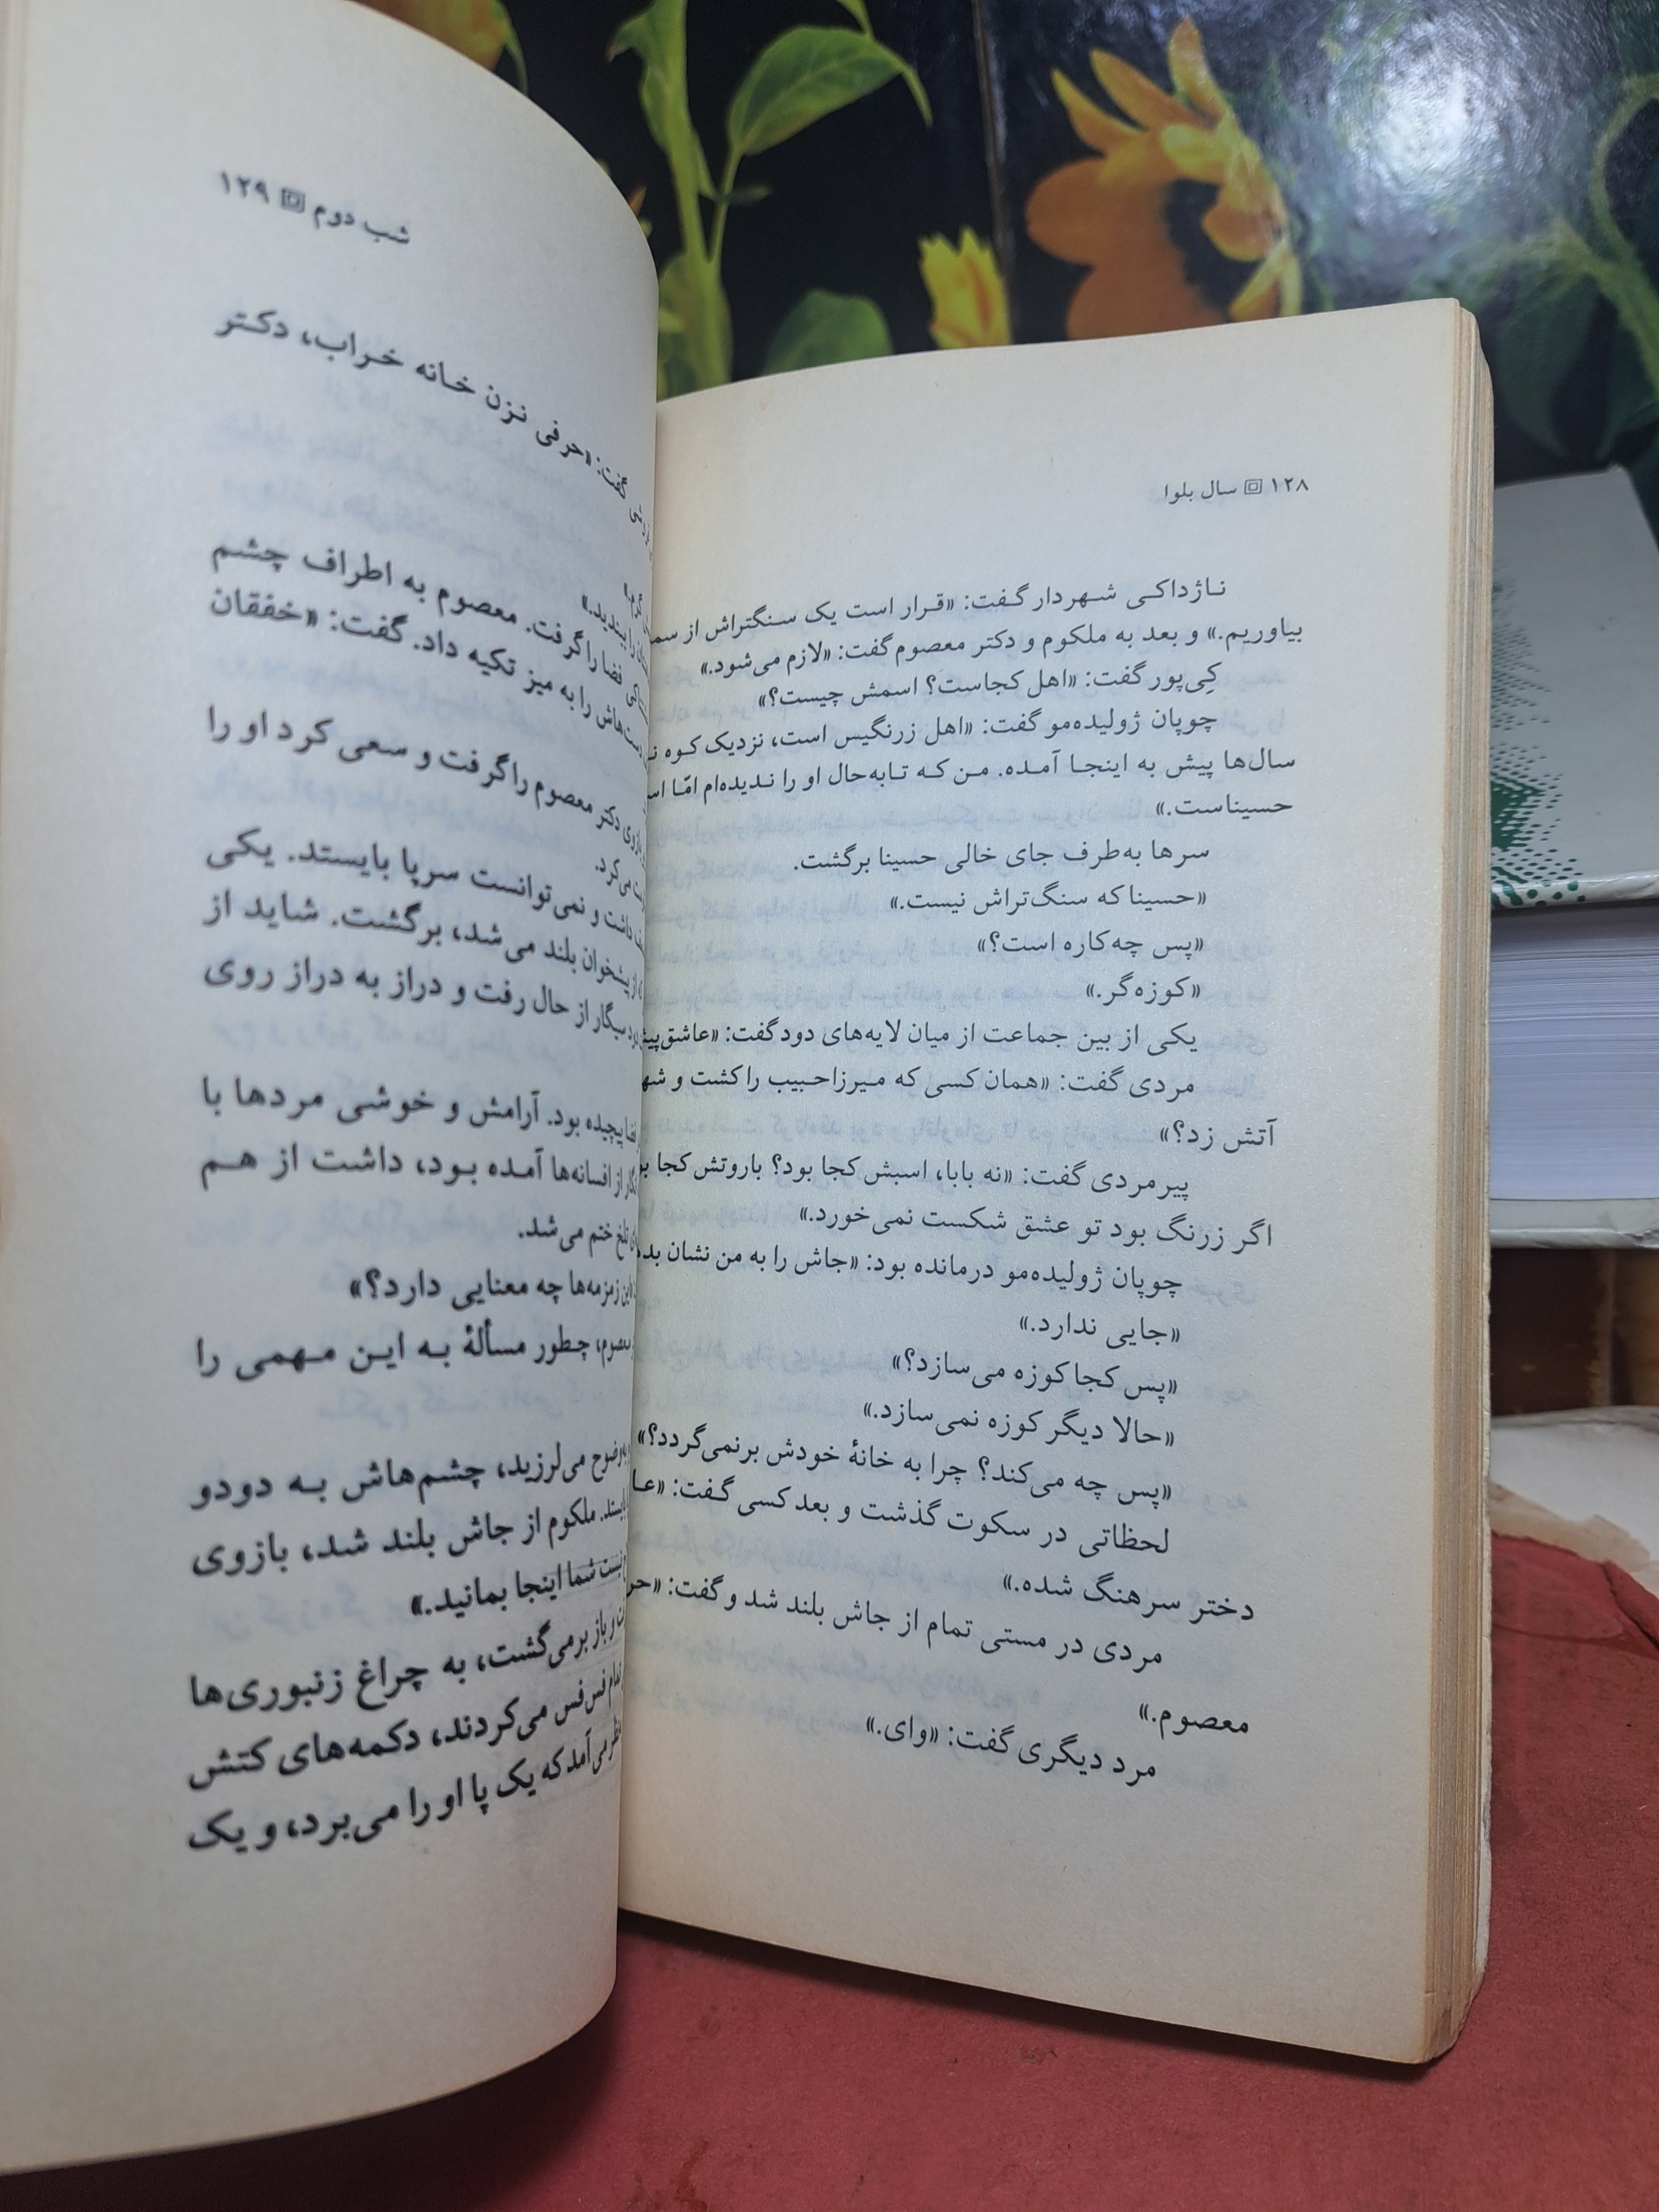 ۱۲۸ سال بلوا
ناژداکی شهردار گفت: «قرار است یک سنگتراش از
بیاوریم.» و بعد به ملکوم و دکتر معصوم گفت: «لازم می‌شود.»
کِی‌پور گفت: «اهل کجاست؟ اسمش چیست؟»
چوپان ژولیده‌مو گفت: «اهل زرنگیس است، نزدیک کوه
سال‌ها پیش به اینجا آمده. من که تا به‌حال او را ندیده‌ام امّا
حسیناست.»
سرها به‌طرف جای خالی حسینا برگشت.
«حسینا که سنگ‌تراش نیست.»
«پس چه کاره است؟»
«کوزه‌گر.»
یکی از بین جماعت از میان لایه‌های دود گفت:
مردی گفت: «همان کسی که میرزاحبیب را کشت و
آتش زد؟»
پیرمردی گفت: «نه بابا، اسبش کجا بود؟ باروتش کجا
اگر زرنگ بود تو عشق شکست نمی‌خورد.»
چوپان ژولیده‌مو درمانده بود: «جاش را به من نشان
«جایی ندارد.»
«پس کجا کوزه می‌سازد؟»
«حالا دیگر کوزه نمی‌سازد.»
«پس چه می‌کند؟ چرا به خانهٔ خودش برنمی‌گردد؟»
لحظاتی در سکوت گذشت و بعد کسی گفت:
دختر سرهنگ شده.»
مردی در مستی تمام از جاش بلند شد و گفت:
معصوم.»
مرد دیگری گفت: «وای.»
شب دوم ۱۲۹
گفت: «حرفی نزن خانه خراب، دکتر
را ببندید.»
فضا را گرفت. معصوم به اطراف چشم
دست‌هاش را به میز تکیه داد. گفت: «خفقان
بازوی دکتر معصوم را گرفت و سعی کرد او را
می‌کرد.
داشت و نمی‌توانست سرپا بایستد. یکی
از پیشخوان بلند می‌شد، برگشت. شاید از
سیگار از حال رفت و دراز به دراز روی
پیچیده بود. آرامش و خوشی مردها با
از افسانه‌ها آمده بود، داشت از هم
تلخ ختم می‌شد.
این زمزمه‌ها چه معنایی دارد؟»
معصوم، چطور مسألهٔ به این مهمی را
به‌وضوح می‌لرزید، چشم‌هاش به دودو
ملکوم از جاش بلند شد، بازوی
نیست شما اینجا بمانید.»
و باز برمی‌گشت، به چراغ زنبوری‌ها
فس‌فس می‌کردند، دکمه‌های کتش
می‌آمد که یک پا او را می‌برد، و یک